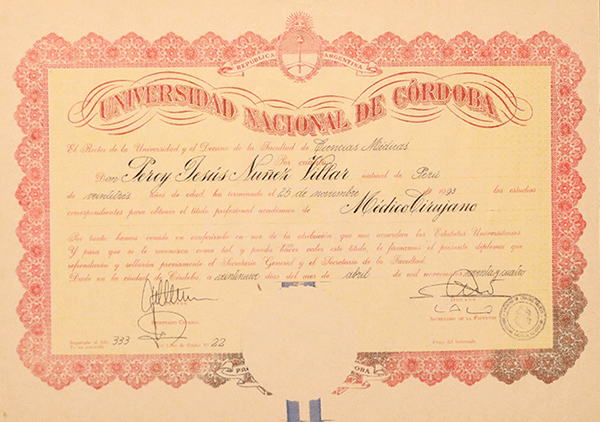 REPUBLICA ARGENTINA
UNIVERSIDAD NACIONAL DE CÓRDOBA
El Rector de la Universidad y el Decano de la Facultad de Ciencias Médicas
Por cuanto
Don Percy Jesús Nuñez Villar natural de Perú
de veintitrés años de edad, ha terminado el 25 de noviembre de 1993 los estudios
correspondientes para obtener el título profesional académico de Médico Cirujano
Por tanto: hemos venido en conferírselo en uso de la atribución que nos acuerdan los Estatutos Universitarios
Y para que se le reconozca como tal, y pueda hacer valer este título, le firmamos el presente diploma que
refrendarán y sellarán previamente el Secretario General y el Secretario de la Facultad.
Dado en la ciudad de Córdoba, a veintinueve días del mes de abril de mil novecientos noventa y cuatro
DECANO
SECRETARIO GENERAL
SECRETARIO DE LA FACULTAD
Registrado al folio 333
del Libro de Grados Nº 22
Firma del Interesado